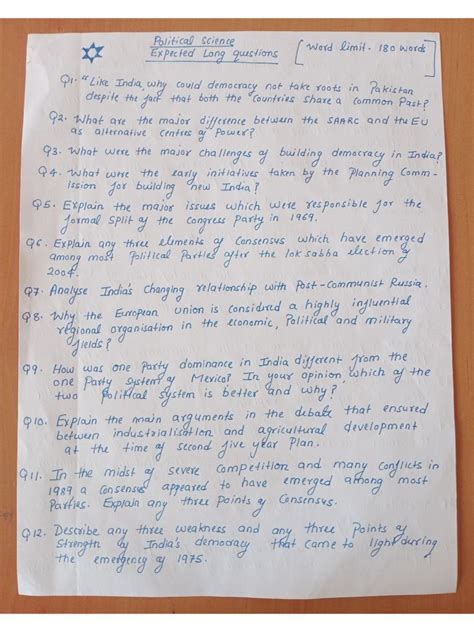 Political Science
Expected Long questions
[Word limit - 180 words]
Q1. "Like India, why could democracy not take roots in Pakistan
despite the fact that both the Countries share a Common Past?
Q2. What are the major difference between the SAARC and the EU
as alternative Centres of Power?
Q3. What were the major challenges of building democracy in India?
Q4. What were the early initiatives taken by the Planning Comm-
ission for building new India?
Q5. Explain the major issues which were responsible for the
formal Split of the Congress Party in 1969.
Q6. Explain any three elements of Consensus which have emerged
among most Political Parties after the lok sabha election of
2004.
Q7. Analyse India's Changing relationship with Post-Communist Russia.
Q8. Why the European Union is considered a highly influential
regional organisation in the economic, Political and military
fields?
Q9. How was one Party dominance in India different from the
one Party system of Mexico? In your opinion, which of the
two Political system is better and why?
Q10. Explain the main arguments in the debate that ensured
between industrialisation and agricultural development
at the time of second five year Plan.
Q11. In the midst of severe Competition and many Conflicts in
1989 a Consensus appeared to have emerged among most
Parties. Explain any three Points of Consensus.
Q12. Describe any three weakness and any three Points of
Strength of India's democracy that came to light during
the emergency of 1975.